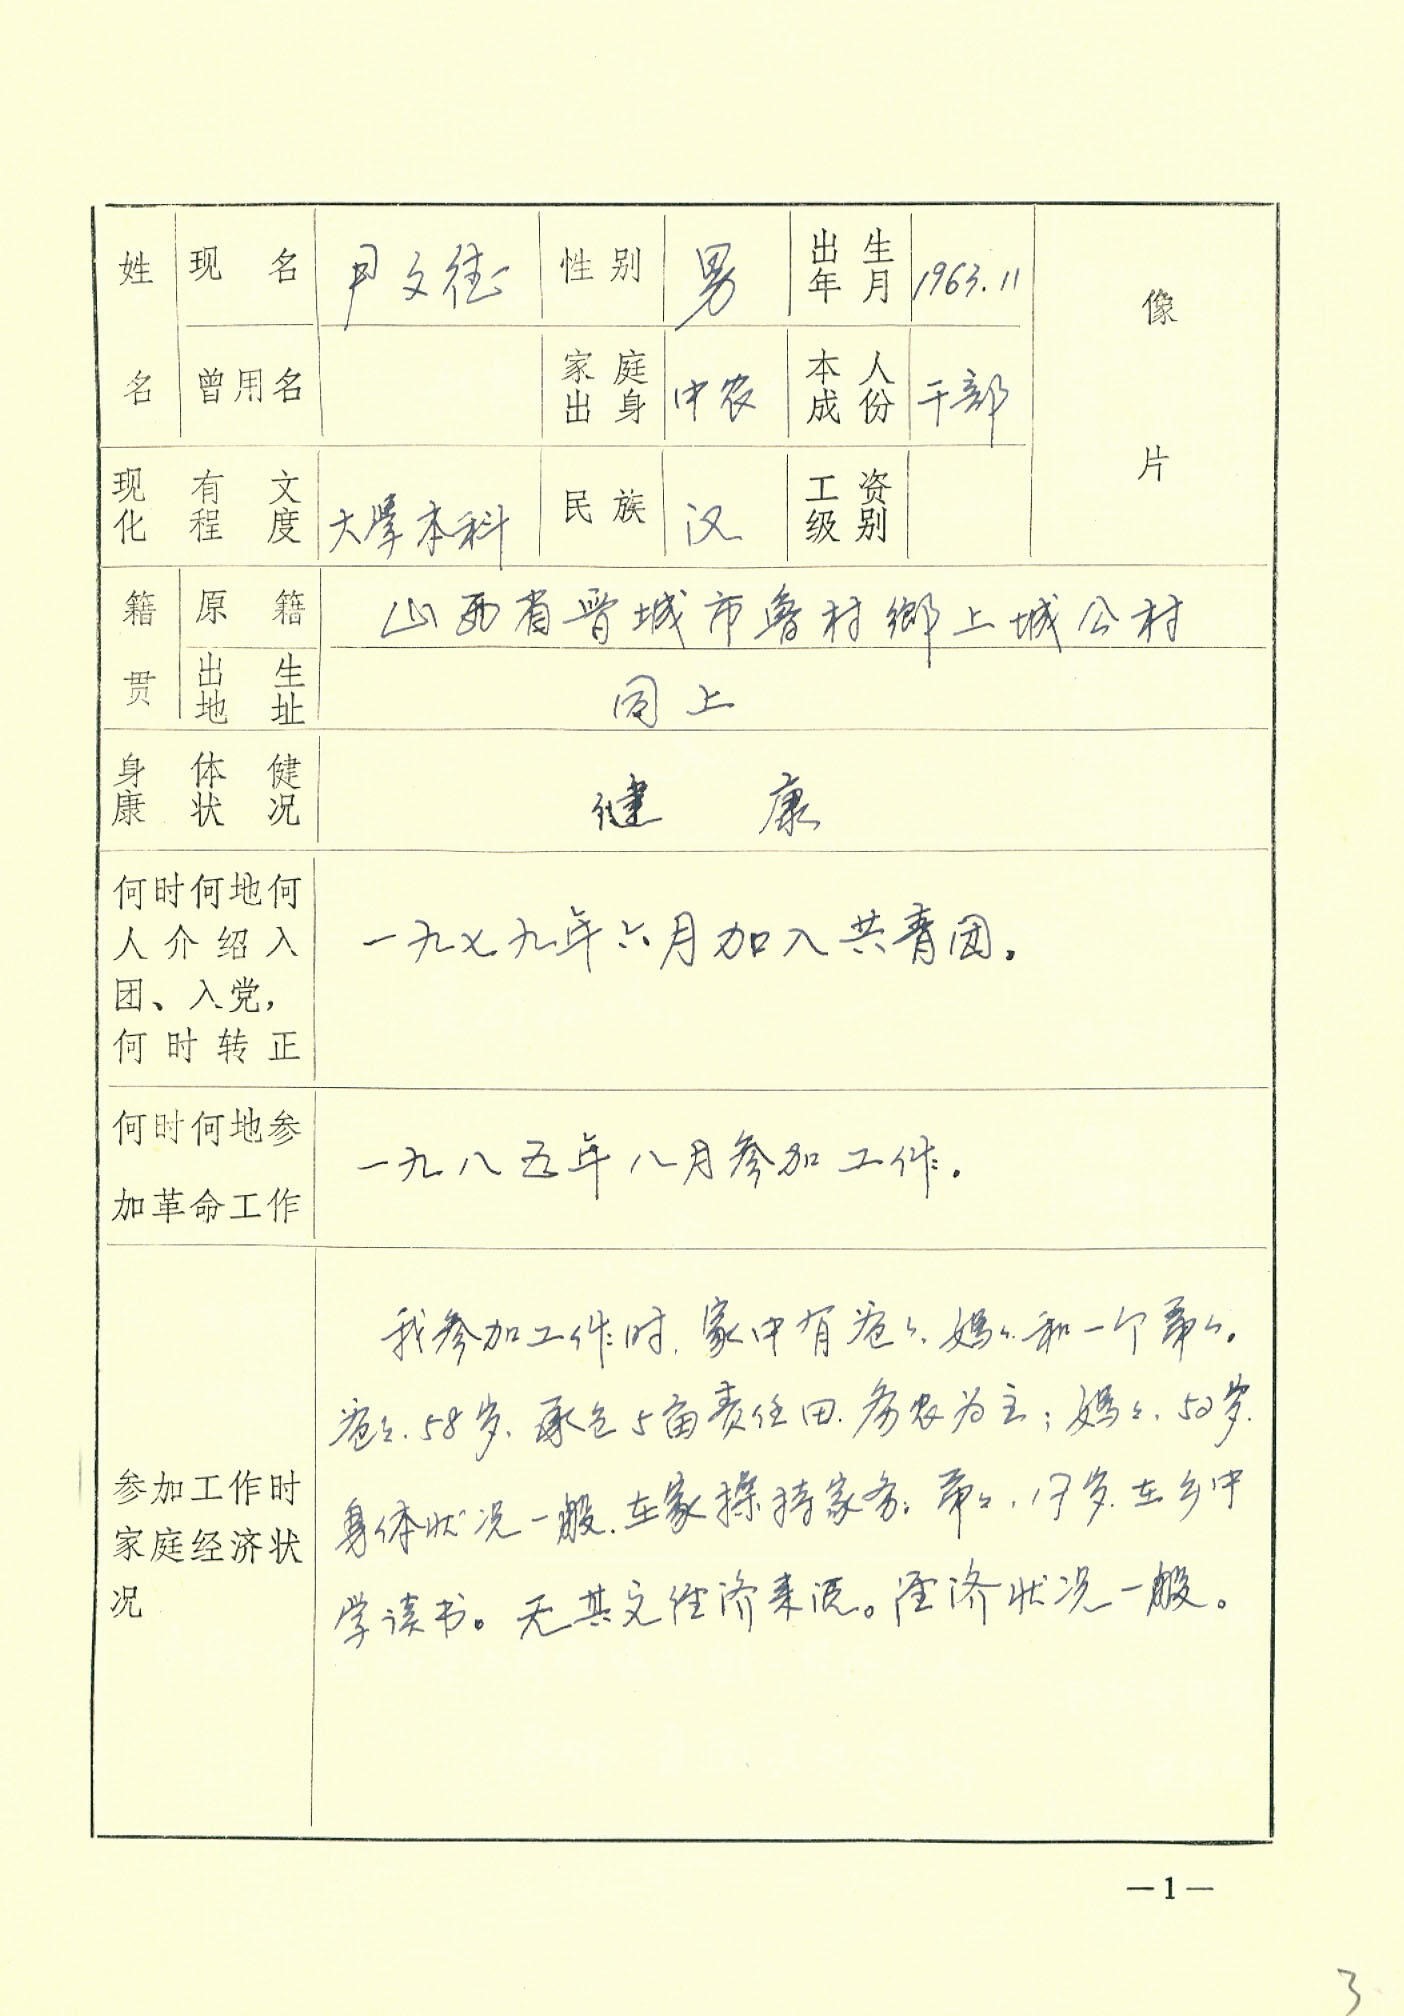 姓名 现名 尹文德 性别 男 出生年月 1963.11 像片
曾用名 家庭出身 中农 本人成份 干部
现有文化程度 大学本科 民族 汉 工资级别
籍贯 原籍 山西省晋城市鲁村鄉上城公村
出生地址 同上
身体健康状况 健康
何时何地何
人介绍入
团、入党，
何时转正
一九七九年六月加入共青团。
何时何地参
加革命工作
一九八五年八月参加工作。
参加工作时
家庭经济状
况
我参加工作时，家中有爸々、媽々和一个弟々。
爸々、58岁、承包5亩责任田，务农为主；媽々、52岁，
身体状况一般，在家操持家务；弟々、17岁，在乡中
学读书。无其它经济来源。经济状况一般。
—1—
3